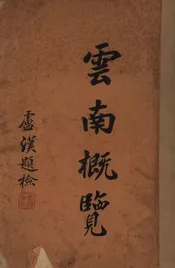 雲南概覽
盧漢題檢